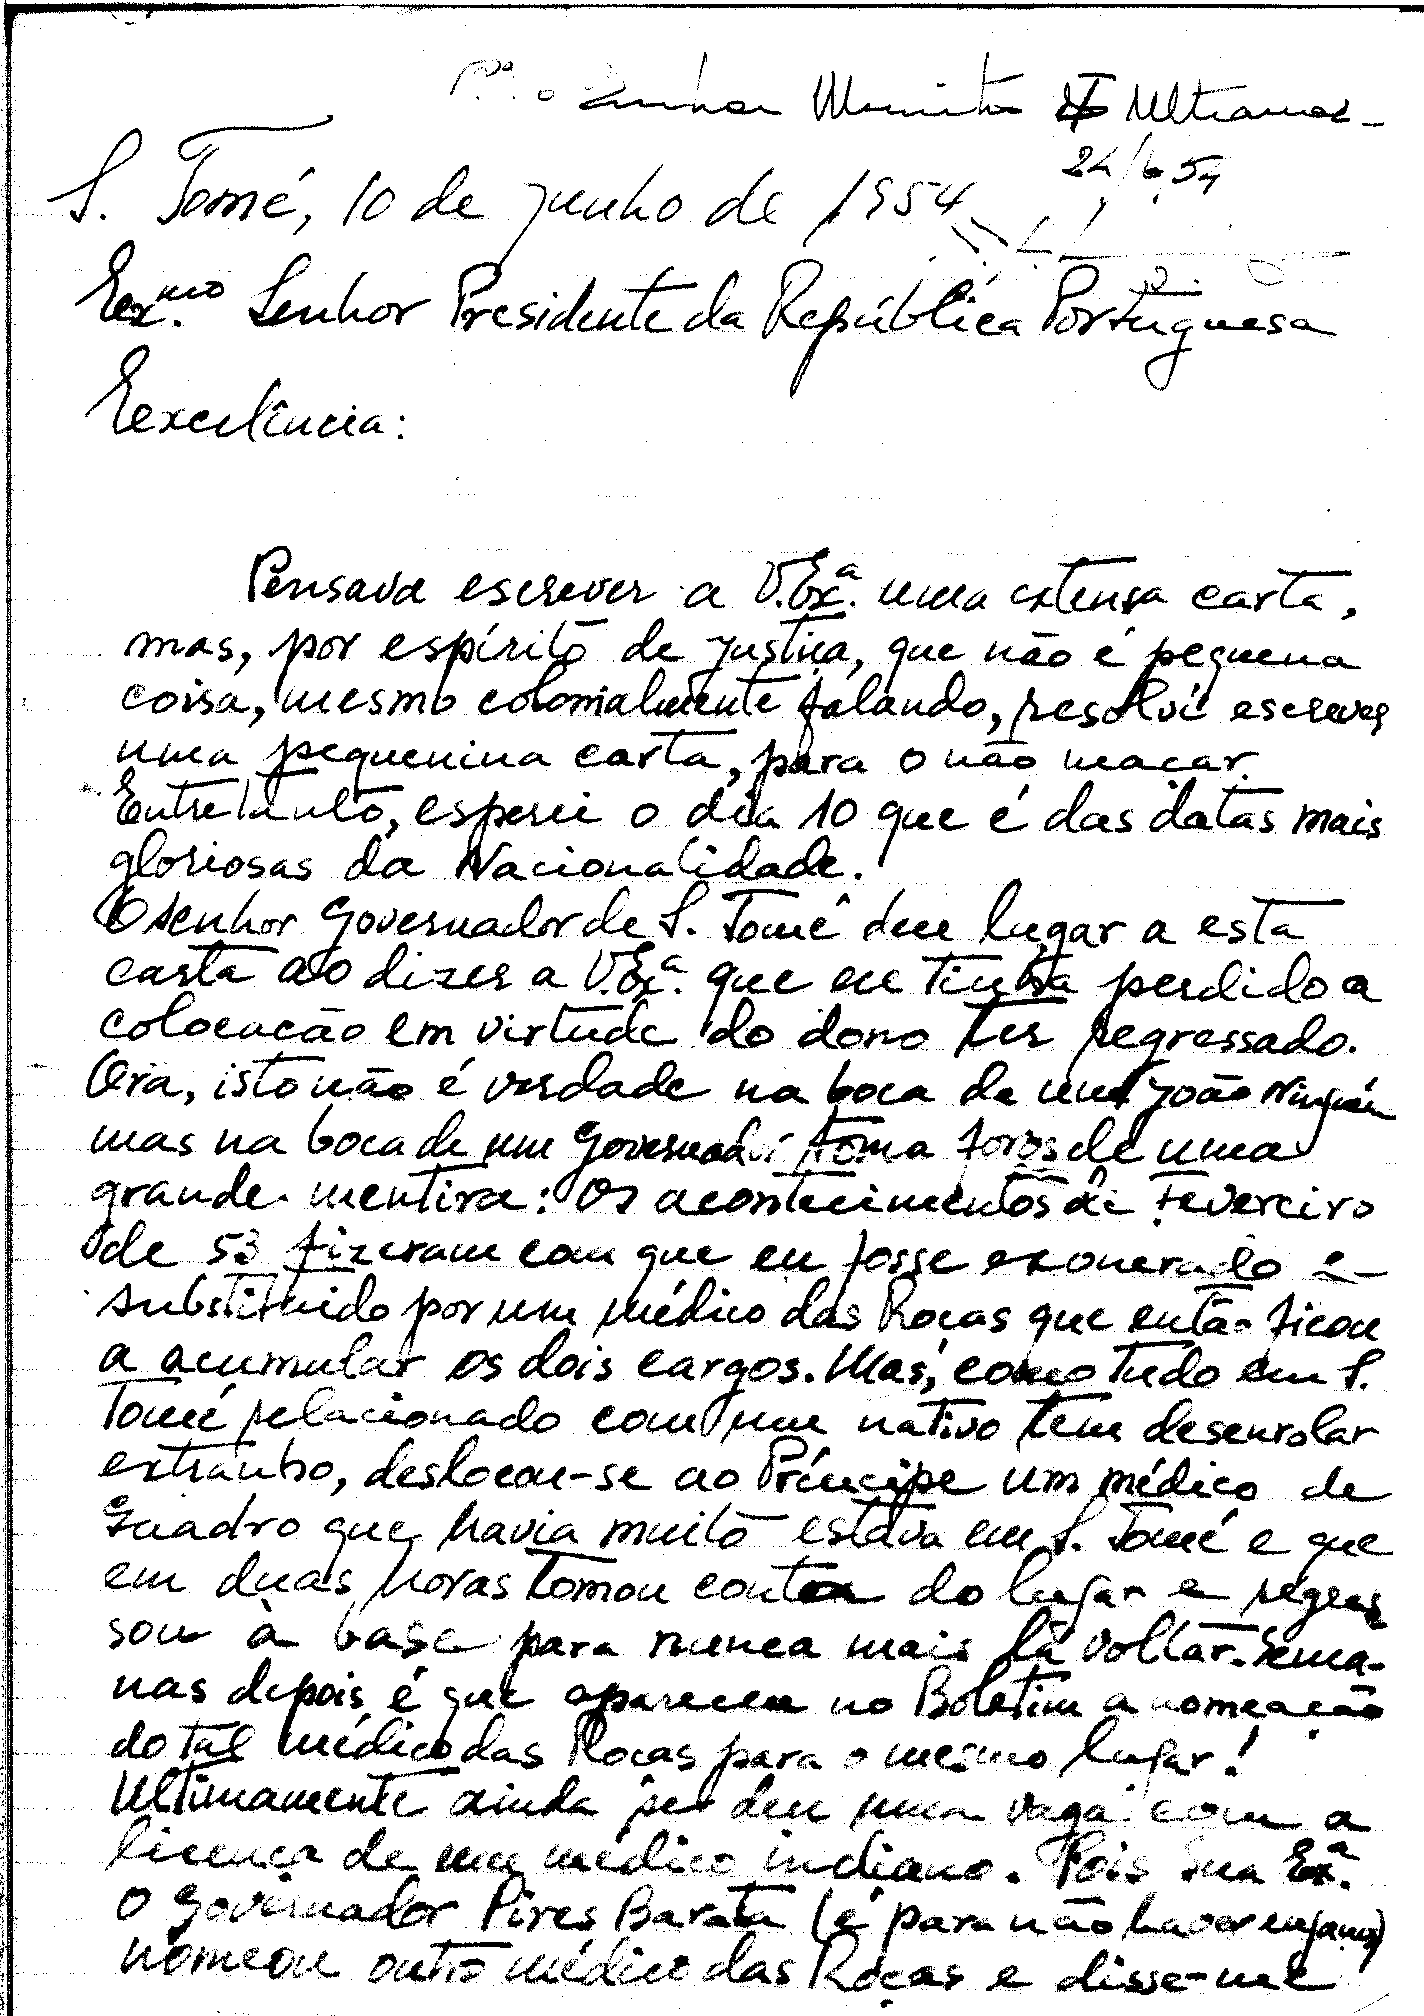 Senhor Ministro do Ultramar -
24/6/54
S. Tomé, 10 de junho de 1954
Exmo. Senhor Presidente da República Portuguesa
Excelência:
Pensava escrever a V. Exª. uma extensa carta,
mas, por espírito de justiça, que não é pequena
coisa, mesmo colonialmente falando, resolvi escrever
uma pequenina carta, para o não maçar.
Entretanto, esperei o dia 10 que é das datas mais
gloriosas da Nacionalidade.
O senhor Governador de S. Tomé deu lugar a esta
carta ao dizer a V. Exª. que eu tinha perdido a
colocação em virtude do dono ter regressado.
Ora, isto não é verdade na boca de um João Ninguém
mas na boca de um Governador toma foros de uma
grande mentira: Os acontecimentos de Fevereiro
de 53 fizeram com que eu fosse exonerado e
substituído por um médico das Roças que então ficou
a acumular os dois cargos. Mas, como tudo em S.
Tomé relacionado com um nativo tem desenrolar
extranho, deslocou-se ao Príncipe um médico de
Quadro que havia muito estava em S. Tomé e que
em duas horas tomou conta do lugar e regres
sou à base para nunca mais lá voltar. Sema-
nas depois é que apareceu no Boletim a nomeação
do tal médico das Roças para o mesmo lugar!
Ultimamente ainda se deu uma vaga com a
licença de um médico indiano. Pois Sua Exª.
o Governador Pires Barata (é para não haver enganos)
nomeou outro médico das Roças e disse-me